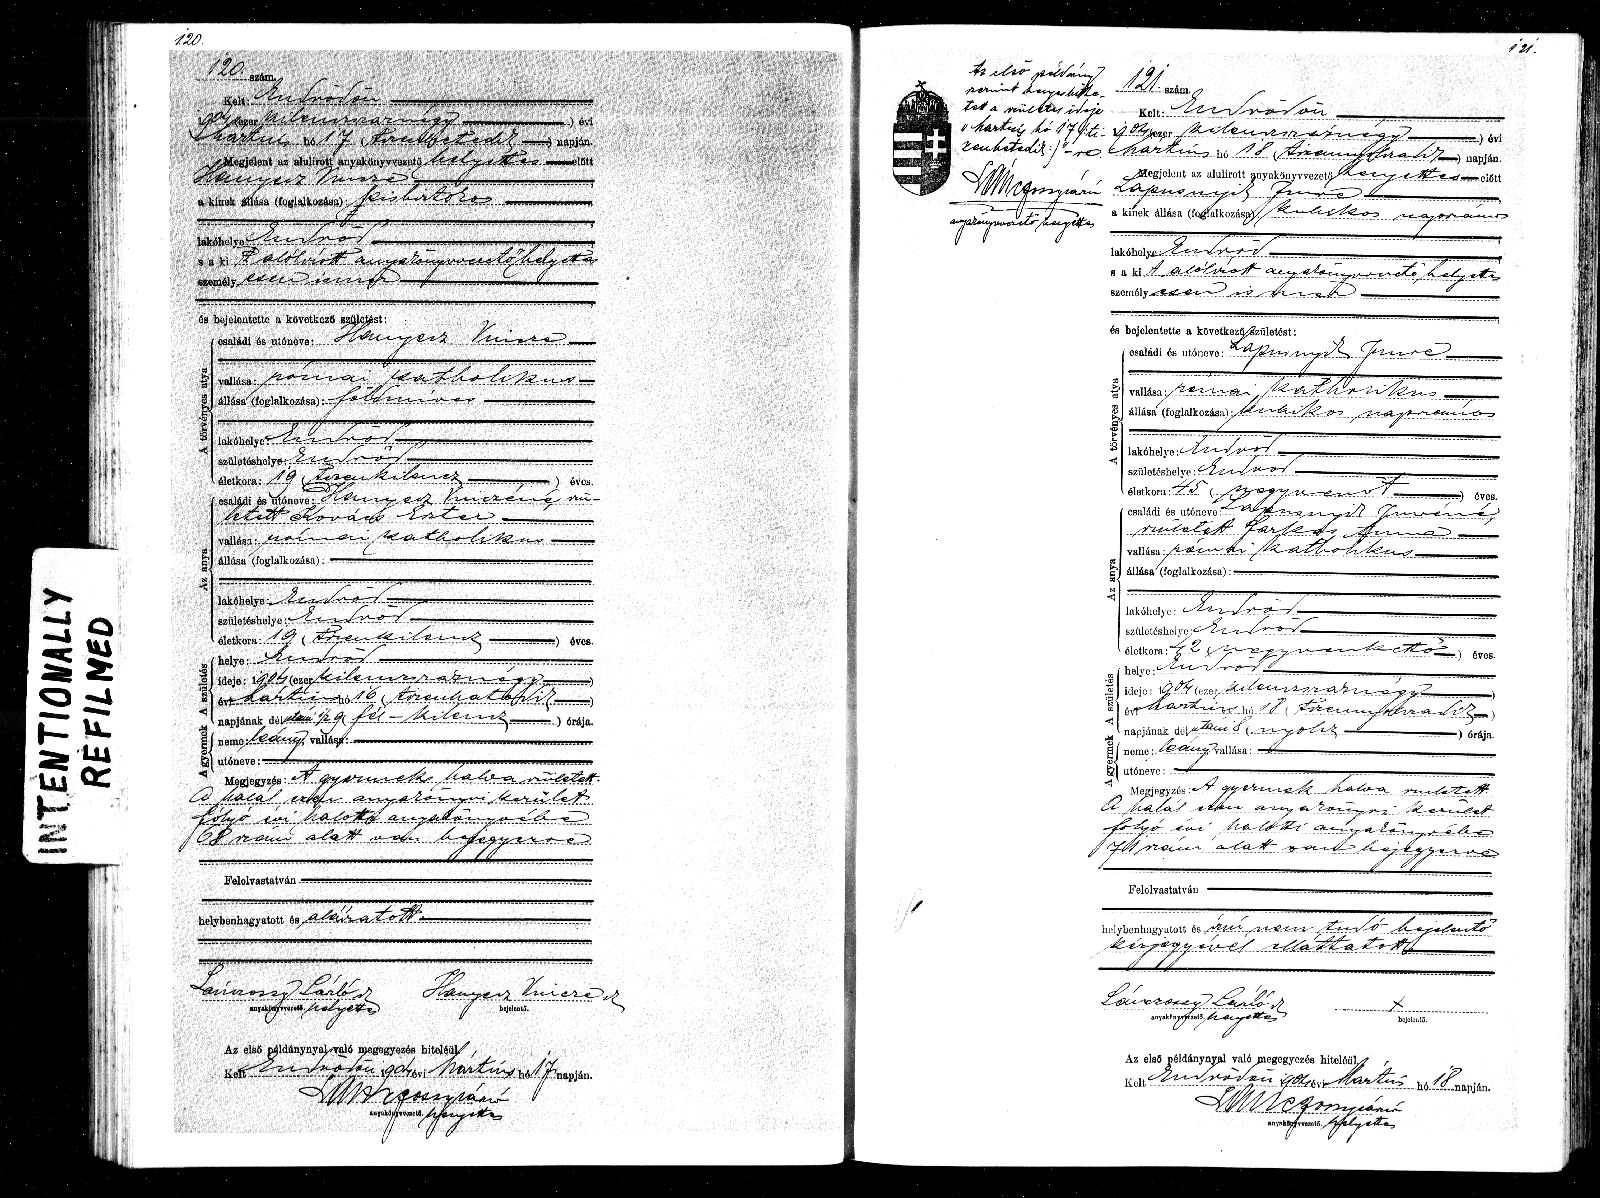 120.
120. szám.
Kelt: Endrődön
904 (ezer kilenczszáznégy) évi
Martius hó 17 (tizenhetedik) napján.
Megjelent az alulirott anyakönyvvezető helyettes előtt
Hanyecz Vincze
a kinek állása (foglalkozása): kisbirtokos
lakóhelye Endrőd
s a ki t alólirott anyakönyvvezető helyettes
személyesen ismer
és bejelentette a következő születést:
A törvényes atya
családi és utóneve: Hanyecz Vincze
vallása: római katholikus
állása (foglalkozása): földmives
lakóhelye: Endrőd
születéshelye: Endrőd
életkora: 19 (tizenkilencz) éves.
Az anya
családi és utóneve: Hanyecz Vinczéné, szü-
letett Kovács Eszter
vallása: római katholikus
állása (foglalkozása):
lakóhelye: Endrőd
születéshelye: Endrőd
életkora: 19 (tizenkilencz) éves.
A születés
helye: Endrőd
ideje: 1904 (ezer kilenczszáznégy)
évi Martius hó 16 (tizenhatodik)
napjának dél után 1/2 9 (fél-kilencz) órája.
A gyermek
neme: leány, vallása:
utóneve:
Megjegyzés: A gyermek halva született
A halál ezen anyakönyvi kerület
folyó évi halotti anyakönyvébe
68 szám alatt van bejegyezve
Felolvastatván
helybenhagyatott és aláiratott
László
anyakönyvvezető. helyettes
Hanyecz Vincze
bejelentő.
Az első példánynyal való megegyezés hiteléül
Kelt Endrődön 904 évi Mártius hó 17 napján.
anyakönyvvezető. helyettes
121.
Az első példány
szerint helyesbitte-
tett a születés ideje
Martius hó 17 (ti-
zenhetedik)-re
anyakönyvvezető helyettes
121. szám.
Kelt: Endrődön
904 (ezer kilenczszáznégy) évi
Martius hó 18 (tizennyolczadik) napján.
Megjelent az alulirott anyakönyvvezető helyettes előtt
Lapusnyik Imre
a kinek állása (foglalkozása) kubikos napszámos
lakóhelye Endrőd
s a ki t alólirott anyakönyvvezető helyettes
személyesen ismer
és bejelentette a következő születést:
A törvényes atya
családi és utóneve: Lapusnyik Imre
vallása: római katholikus
állása (foglalkozása): kubikos napszámos
lakóhelye: Endrőd
születéshelye: Endrőd
életkora: 45 (negyvenöt) éves.
Az anya
családi és utóneve: Lapusnyik Imréné,
született Farkas Anna
vallása: római katholikus
állása (foglalkozása):
lakóhelye: Endrőd
születéshelye: Endrőd
életkora: 42 (negyvenkettő) éves.
A születés
helye: Endrőd
ideje: 1904 (ezer kilenczszáznégy)
évi Martius hó 18 (tizennyolczadik)
napjának dél után 8 (nyolcz) órája.
A gyermek
neme: leány vallása:
utóneve:
Megjegyzés: A gyermek halva született
A halál ezen anyakönyvi kerület
folyó évi halotti anyakönyvébe
71 szám alatt van bejegyezve
Felolvastatván
helybenhagyatott és irni nem tudó bejelentő
kézjegyével elláttatott
László
anyakönyvvezető. helyettes
+
bejelentő.
Az első példánynyal való megegyezés hiteléül
Kelt Endrődön 904 évi Mártius hó 18 napján.
anyakönyvvezető. helyettes
INTENTIONALLY
REFILMED